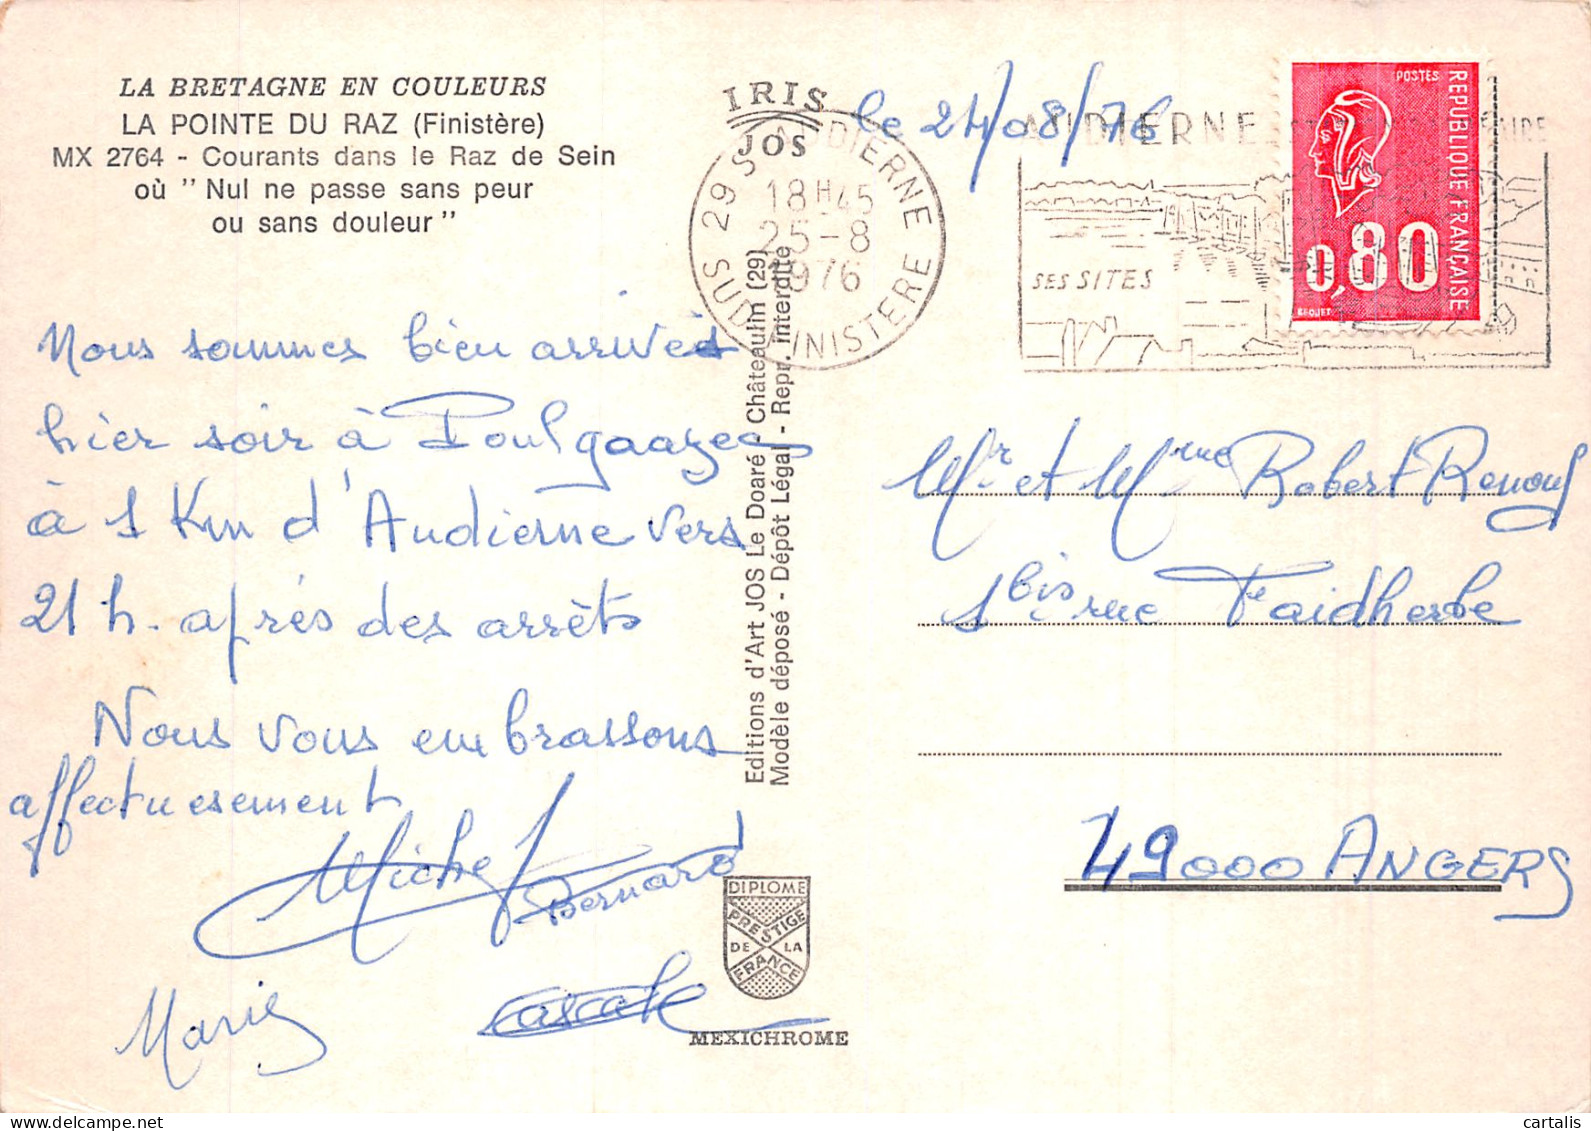 LA BRETAGNE EN COULEURS
LA POINTE DU RAZ (Finistère)
MX 2764 - Courants dans le Raz de Sein
où " Nul ne passe sans peur
ou sans douleur "
IRIS
JOS
29 S AUDIERNE
18H45
25-8
1976
SUD FINISTERE
le 24/08/76
AUDIERNE
SES SITES
POSTES
REPUBLIQUE FRANÇAISE
0,80
BEQUET
Nous sommes bien arrivés
hier soir à Poulgoazec
à 1 Km d'Audierne vers
21 h. après des arrêts
Nous vous embrassons
affectueusement
Michel
Bernard
Marie
Pascale
Editions d'Art JOS Le Doaré - Châteaulin (29)
Modèle déposé - Dépôt Légal - Repr. interdite
DIPLOME
PRESTIGE
DE LA
FRANCE
MEXICHROME
Mr et Mme Robert Renouf
1 bis rue Faidherbe
49000 ANGERS
delcampe.net
cartalis